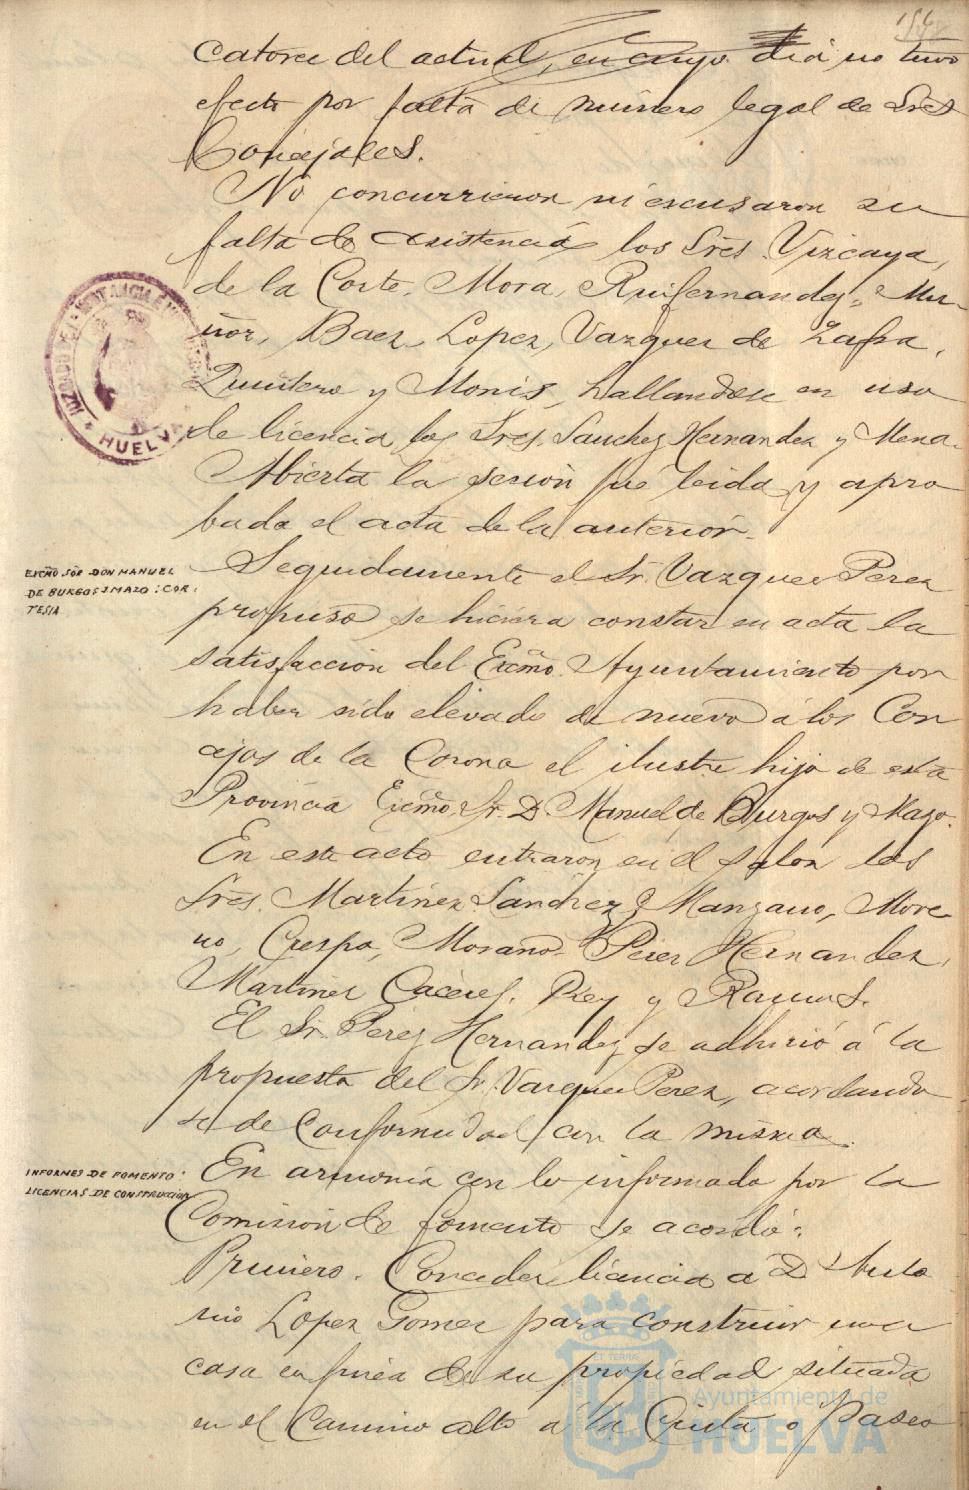 catorce del actual, en cuyo dia no tuvo
efecto por falta de número legal de Sres
Concejales.
No concurrieron ni escusaron su
falta de asistencia los Sres. Vizcaya,
de la Corte, Mora, Ruifernandez, Mu-
ñoz, Baez, Lopez, Vazquez de Zafra,
Quintero y Monis, hallandose en uso
de licencia los Sres. Sanchez Hernandez y Mena.
Abierta la sesión fué leida y apro
bada el acta de la anterior.
EXCMO SOR DON MANUEL
DE BURGOS I MAZO: COR-
TESIA
Seguidamente el Sr. Vazquez Perez
propuso se hiciera constar en acta la
satisfacción del Excmo. Ayuntamiento por
haber sido elevado de nuevo á los Con
sejos de la Corona el ilustre hijo de esta
Provincia Excmo. Sr. D. Manuel de Burgos y Mazo.
En este acto entraron en el salon los
Sres. Martinez Sanchez, Manzano, More-
no, Crespo, Morano, Perez Hernandez,
Martinez Cáceres, Rey y Ramos.
El Sr. Perez Hernandez se adhirió á la
propuesta del Sr. Vazquez Perez, acordando
se de conformidad con la misma.
INFORMES DE FOMENTO:
LICENCIAS DE CONSTRUCCION
En armonia con lo informado por la
Comisión de fomento se acordó:
Primero. Conceder licencia á D. Anto
nio Lopez Gomez para construir una
casa en finca de su propiedad situada
en el Camino alto á la Cinta o Paseo
HUELVA
Ayuntamiento de
HUELVA